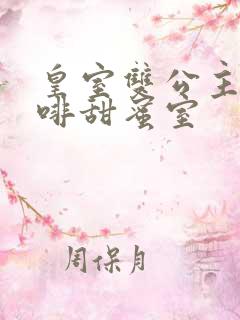 皇室雙公主
啡甜蜜室
周保月